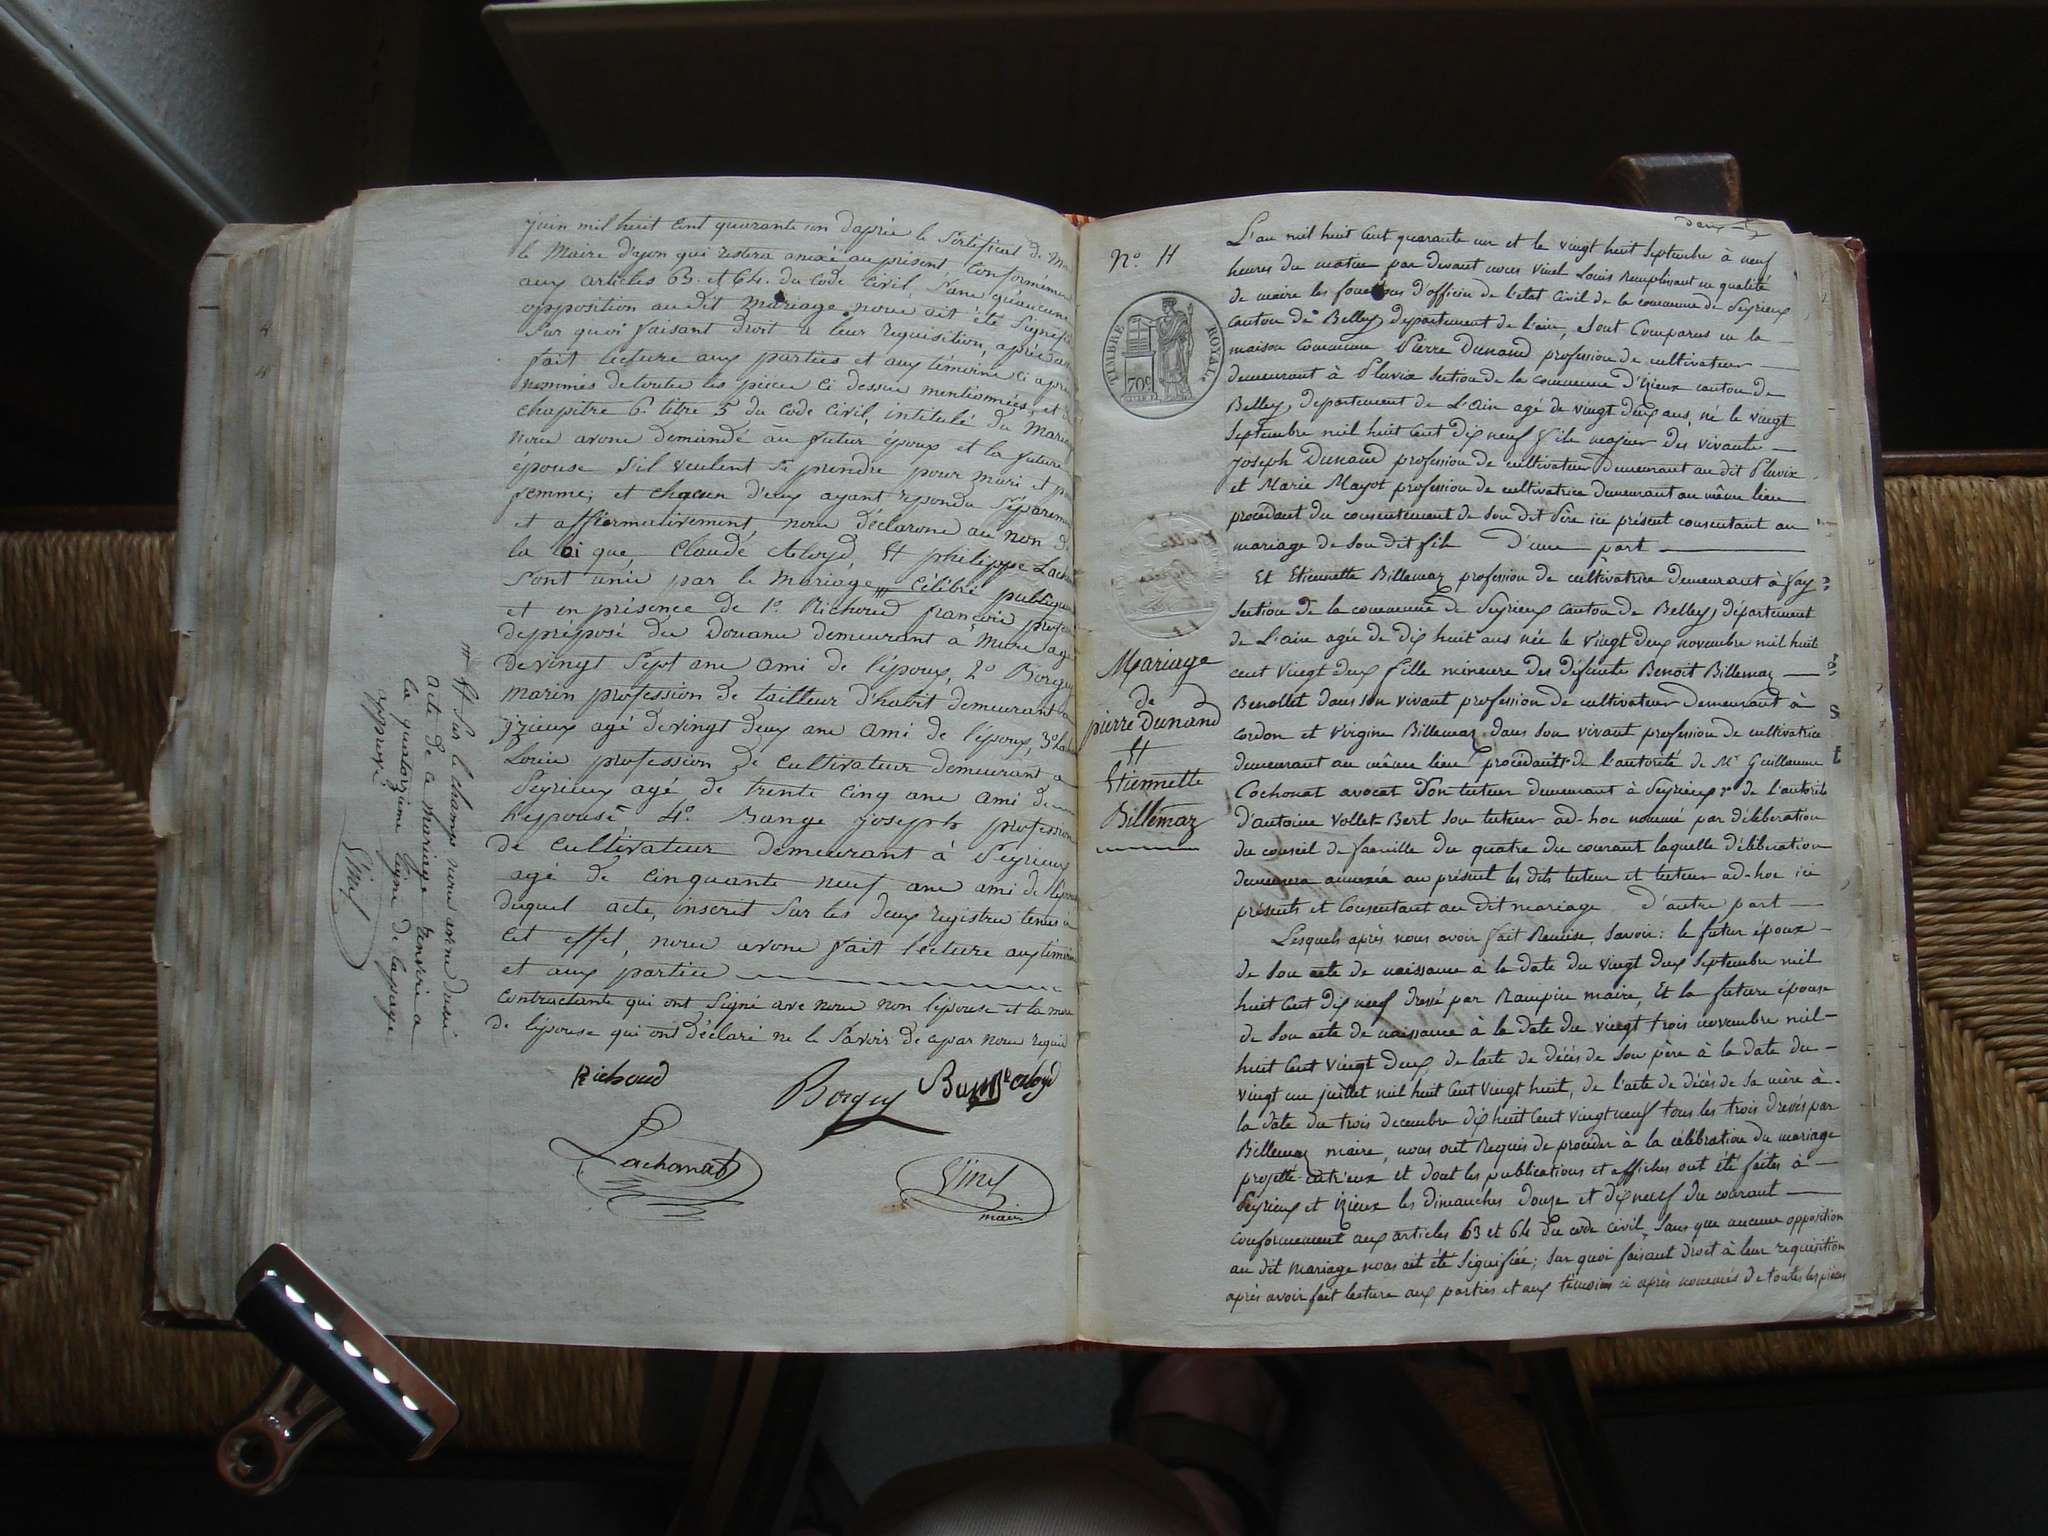 juin mil huit cent quarante un d'après le Sertificat de
le Maire d'yon qui restera anéxé au présent, Conformémen
aux articles 63. et 64. du Code Civil, Sans qu'aucune
opposition au dit Mariage nous ait été Signifié
Sur quoi faisant droit à leur réquisition, après avoir
fait lecture aux parties et aux témoins ci après
nommés de toutes les pièces ci dessus mentionnées, et
chapitre 6. titre 5 du Code Civil, intitulé du Mariage
nous avons demandé au futur époux et la future
épouse s'il veulent se prendre pour mari et pour
femme; et chacun d'eux ayant répondu séparemen
et affirmativement nous déclarons au nom de
la loi que Claude Aloyd Et philippe Lacho
Sont unis par le Mariage célébré publique
et en présence de 1º. Richoud françois profess
de préposé des Douanes demeurant à Mure agé
de vingt Sept ans ami de l'époux, 2º Borguy
marin profession de tailleur d'habit demeurant à
izieux agé de vingt deux ans ami de l'époux, 3º
Louis profession de cultivateur demeurant a
Peyrieux agé de trente cinq ans ami de
l'épouse 4º. Bange joseph profession
de cultivateur demeurant à Peyrieux
agé de cinquante neuf ans ami de l'épouse
duquel acte, inscrit sur les deux registres tenus à
cet effet, nous avons fait lecture aux témoins
et aux parties
contractante qui ont Signé avec nous non l'épouse et la mère
de l'épouse qui ont déclaré ne le Savoir de ce par nous requis
Richoud Borguy Aloyd
Lachonat Vinet
maire
Sur le champs nous avons
acte de ce mariage
la quatorzième ligne de la page
approuvé
Vinet
Nº H
TIMBRE ROYAL
70c
Mariage
de
pierre Dunand
Et
Etiennette
Billemaz
L'an mil huit cent quarante un et le vingt huit Septembre à neuf
heures du matin par devant nous Vinet Louis Remplissant en qualité
de maire les fonctions d'officier de l'état Civil de la commune de Peyrieux
canton de Belley département de l'ain, Sont Comparus en la
maison commune Pierre Dunand profession de cultivateur
demeurant à Pluvix Section de la commune d'izieux canton de
Belley, département de L'ain agé de vingt deux ans, né le vingt
Septembre mil huit cent dix neuf fils majeur des vivants
Joseph Dunand profession de cultivateur demeurant au dit Pluvix
et Marie Mayot profession de cultivatrice demeurant au même lieu
procèdant du consentement de son dit Père ici présent consentant au
mariage de son dit fils D'une part
Et Etiennette Billemaz profession de cultivatrice demeurant à fay
Section de la commune de Peyrieux canton de Belley, département
de L'ain agée de dix huit ans née le vingt deux novembre mil huit
cent vingt deux fille mineure des défunts Benoit Billemaz
Benollet dans son vivant profession de cultivateur demeurant à
cordon et Virgine Billemaz dans son vivant profession de cultivatrice
demeurant au même lieu procèdant de l'autorité de Mr Guillaume
Cochonat avocat son tuteur demeurant à Peyrieux et de l'autorité
d'antoine Vollet Bert son tuteur ad-hoc nommé par délibération
du conseil de famille du quatre du courant laquelle délibération
demeurera annexée au présent les dits tuteur et tuteur ad-hoc ici
présents et Consentant au dit mariage D'autre part
Lesquels après nous avoir fait Remise, Savoir: le futur époux
de son acte de naissance à la date du vingt deux Septembre mil
huit Cent dix neuf dressé par Rampin maire, Et la future épouse
de Son acte de naissance à la date du vingt trois novembre mil
huit Cent Vingt Deux, de l'acte de décès de Son père à la date du
vingt un juillet mil huit Cent Vingt huit, de l'acte de décès de Sa mère à
la date du trois decembre dix huit cent vingt neuf tous les trois dressés par
Billemaz maire, nous ont Requis de procéder à la célébration du mariage
projetté entr'eux et dont les publications et affiches ont été faites à
Peyrieux et izieux les dimanches douze et dix neuf du courant
conformement aux articles 63 et 64 du code civil, Sans que aucune opposition
au dit mariage nous ait été Signifiée; Sur quoi faisant droit à leur requisition
après avoir fait lecture aux parties et aux témoins ci après nommés de toutes les pièces